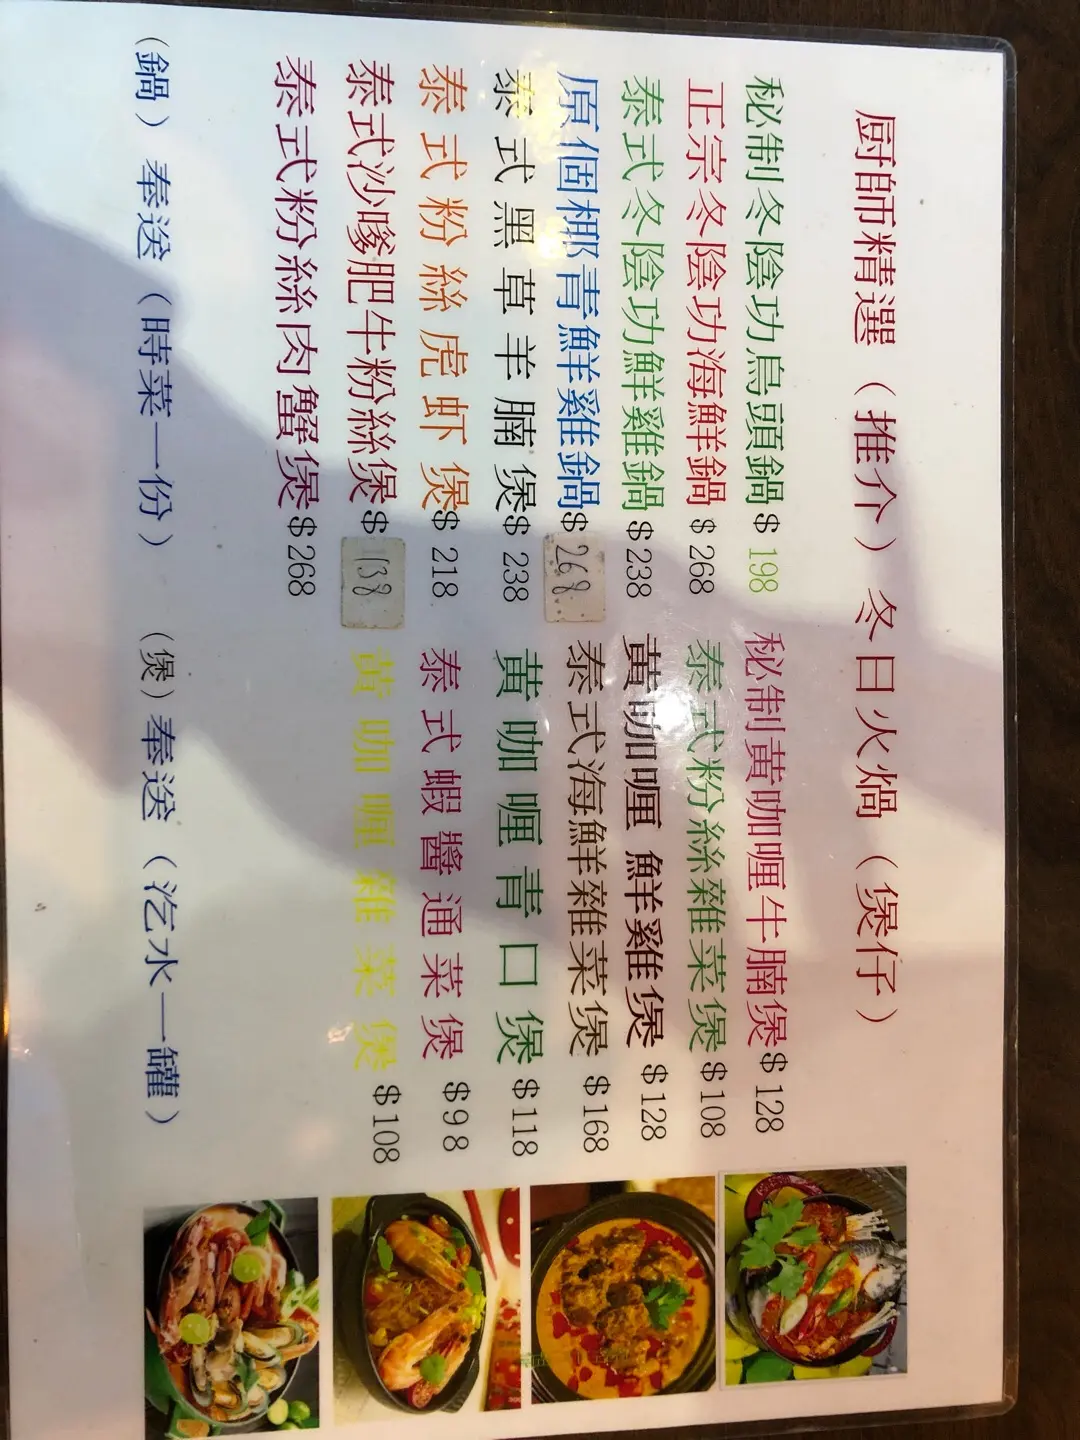 厨師精選（推介）冬日火煱（煲仔）
秘制冬陰功烏頭鍋$198 秘制黄咖喱牛腩煲$128
正宗冬陰功海鮮鍋$268 泰式粉絲雜菜煲$108
泰式冬陰功鮮雞鍋$238 黄咖喱鮮雞煲$128
原個椰青鮮羊雞鍋$268 泰式海鮮雜菜煲$168
泰式黑草羊腩煲$238 黄咖喱青口煲$118
泰式粉絲虎虾煲$218 泰式蝦醬通菜煲$98
泰式沙嗲肥牛粉絲煲$138 黄咖喱雜菜煲$108
泰式粉絲肉蟹煲$268
（鍋）奉送（時菜一份） （煲）奉送（汔水一罐）